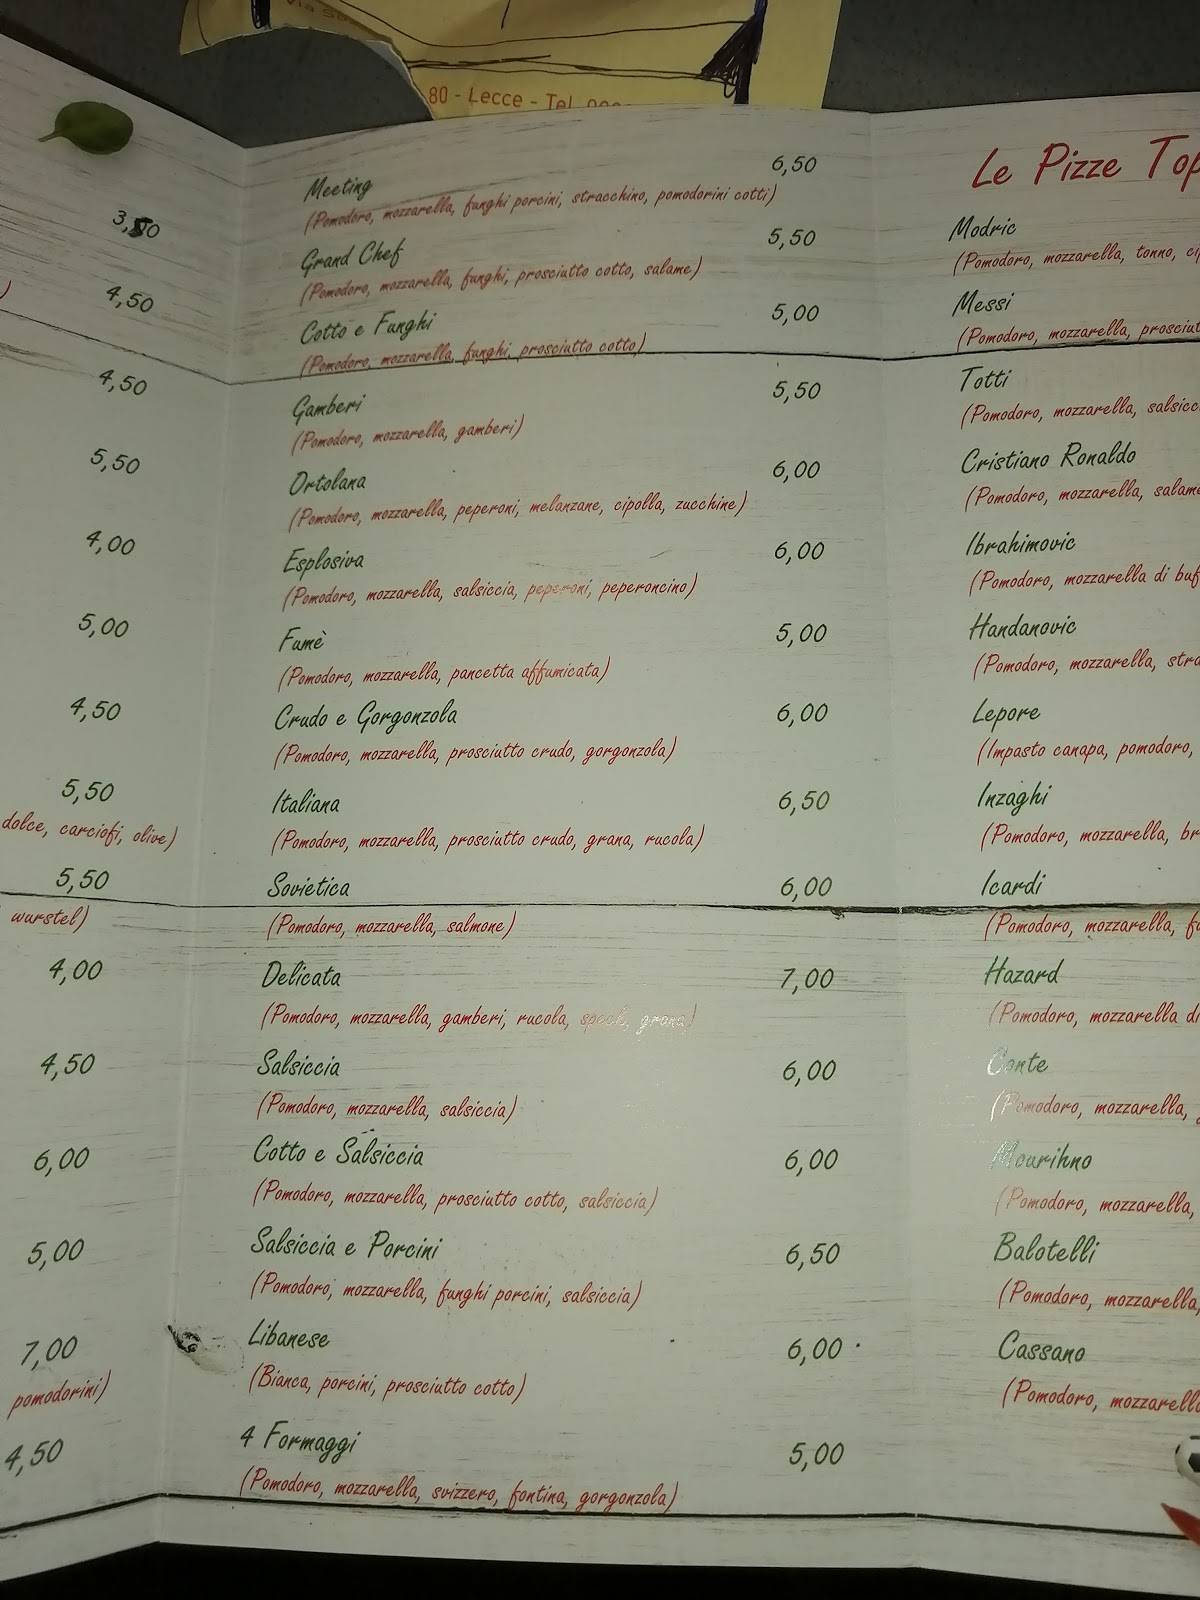 80 - Lecce - Tel.
3,50
4,50
4,50
5,50
4,00
5,00
4,50
5,50
dolce, carciofi, olive)
5,50
wurstel)
4,00
4,50
6,00
5,00
7,00
pomodorini)
4,50
Meeting 6,50
(Pomodoro, mozzarella, funghi porcini, stracchino, pomodorini cotti)
Grand Chef 5,50
(Pomodoro, mozzarella, funghi, prosciutto cotto, salame)
Cotto e Funghi 5,00
(Pomodoro, mozzarella, funghi, prosciutto cotto)
Gamberi 5,50
(Pomodoro, mozzarella, gamberi)
Ortolana 6,00
(Pomodoro, mozzarella, peperoni, melanzane, cipolla, zucchine)
Esplosiva 6,00
(Pomodoro, mozzarella, salsiccia, peperoni, peperoncino)
Fumè 5,00
(Pomodoro, mozzarella, pancetta affumicata)
Crudo e Gorgonzola 6,00
(Pomodoro, mozzarella, prosciutto crudo, gorgonzola)
Italiana 6,50
(Pomodoro, mozzarella, prosciutto crudo, grana, rucola)
Sovietica 6,00
(Pomodoro, mozzarella, salmone)
Delicata 7,00
(Pomodoro, mozzarella, gamberi, rucola, speck, grana)
Salsiccia 6,00
(Pomodoro, mozzarella, salsiccia)
Cotto e Salsiccia 6,00
(Pomodoro, mozzarella, prosciutto cotto, salsiccia)
Salsiccia e Porcini 6,50
(Pomodoro, mozzarella, funghi porcini, salsiccia)
Libanese 6,00
(Bianca, porcini, prosciutto cotto)
4 Formaggi 5,00
(Pomodoro, mozzarella, svizzero, fontina, gorgonzola)
Le Pizze Top
Modric
(Pomodoro, mozzarella, tonno,
Messi
(Pomodoro, mozzarella,
Totti
(Pomodoro, mozzarella,
Cristiano Ronaldo
(Pomodoro, mozzarella,
Ibrahimovic
(Pomodoro, mozzarella di
Handanovic
(Pomodoro, mozzarella,
Lepore
(Impasto canapa, pomodoro,
Inzaghi
(Pomodoro, mozzarella,
Icardi
(Pomodoro, mozzarella,
Hazard
(Pomodoro, mozzarella di
Conte
(Pomodoro, mozzarella,
Mourihno
(Pomodoro, mozzarella,
Balotelli
(Pomodoro, mozzarella,
Cassano
(Pomodoro, mozzarella